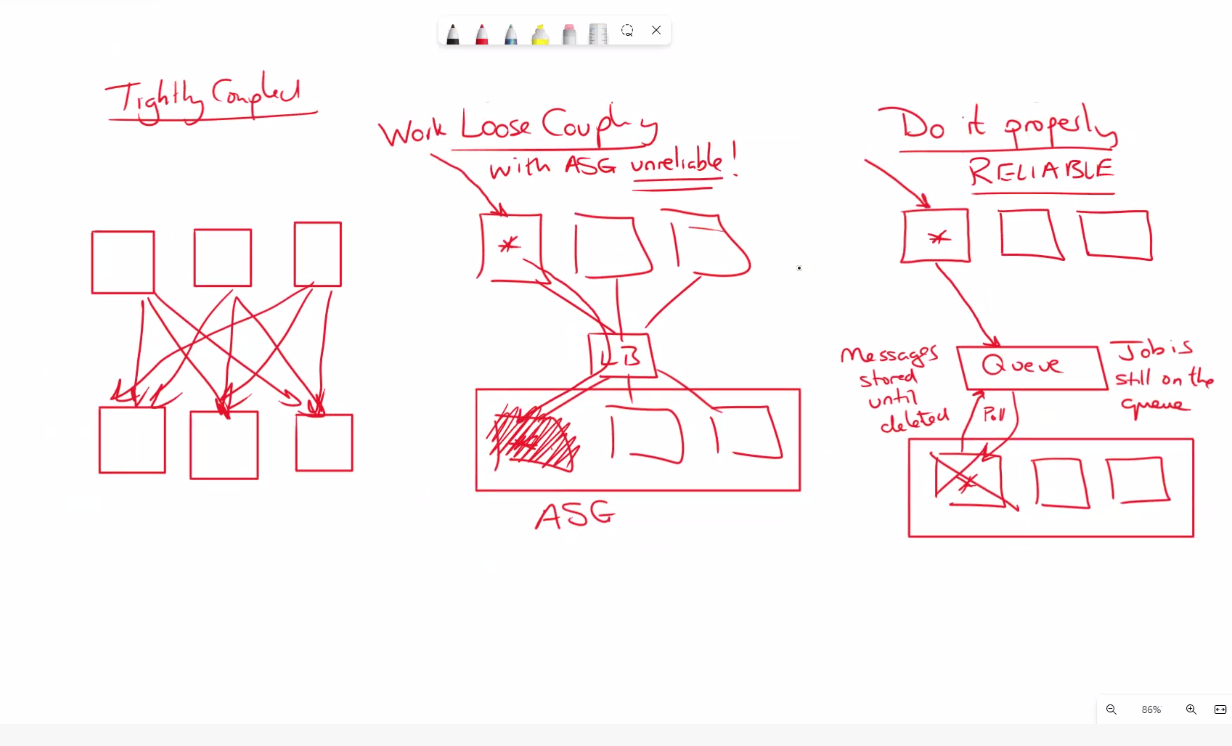 Tightly Coupled
Work Loose Coupling
with ASG unreliable!
*
LB
ASG
Do it properly
RELIABLE
*
Messages
stored
until
deleted
Queue
Job is
still on the
queue
Poll
*
86%